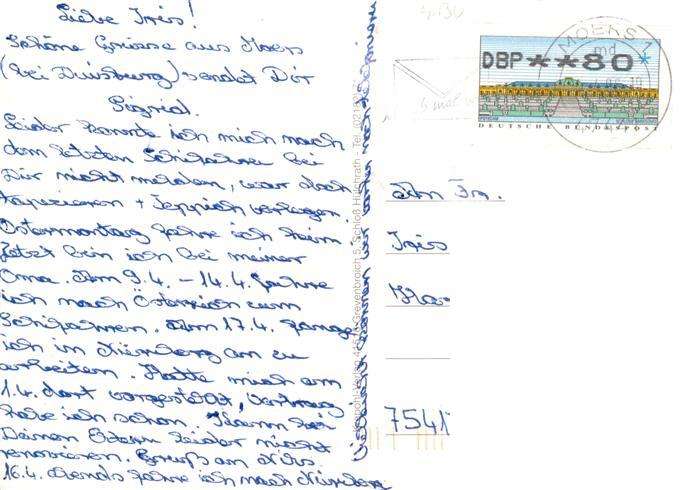 Liebe Iris!
Schöne Grüsse aus Moers
(bei Duisburg) sendet Dir
Sigrid.
Leider konnte ich mich nach
dem letzten Schifahren bei
Dir nicht melden, war doch
tapezieren + Teppich verlegen.
Ostermontag fahre ich heim.
Jetzt bin ich bei meiner
Oma. Am 9.4. - 14.4. fahre
ich nach Österreich zum
Schifahren. Am 17.4. fange
ich in Nürnberg an zu
arbeiten. Hatte mich am
1.4. dort vorgestellt, Vertrag
habe ich schon. Kann bei
Deinen Eltern leider nicht
renovieren. Gruß an Nils.
16.4. abends fahre ich nach Nürnberg
Vielleicht können wir vorher noch telefonieren
Grevenbroich 5, Schloß Hülchrath - Tel.
DBP**80*
DEUTSCHE BUNDESPOST
MOERS 1
md
An Fr.
Iris
7541